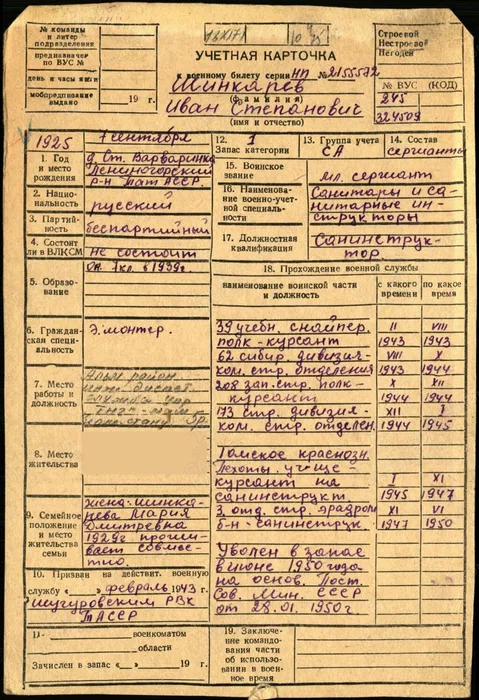 № команды
и литер
подразделения
предназначен
по ВУС №
день и часы явки
мобпредписание
выдано
19 г.
УЧЕТНАЯ КАРТОЧКА
к военному билету серии НП № 2155572
Минкарев
(фамилия)
Иван Степанович
(имя и отчество)
Строевой
Нестроевой
Негоден
№ ВУС (КОД)
245
324509
1925
7 сентября
1. Год
и место
рождения
д. Ст. Варваринка
Лениногорский
р-н ТатАССР.
2. Нацио-
нальность
русский
3. Партий-
ность
беспартийный
4. Состоит
ли в ВЛКСМ
не состоит
5. Образо-
вание
Ок. 7кл. в 1939г.
6. Граждан-
ская специ-
альность
Э.монтер.
7. Место
работы и
должность
8. Место
жительства
9. Семейное
положение
и место
жительства
семьи
жена-Минка-
рева Мария
Дмитревна
1929г прожи-
вает совмес-
тно.
10. Призван на действит. военную
службу «__» февраль 1943 г
Шугуровским РВК
ТАССР
11-
военкоматом
области
Зачислен в запас «__» 19 г.
12. 1
Запас категории
13. Группа учета
СА
14. Состав
сержанты
15. Воинское
звание
мл. сержант
16. Наименование
военно-учет-
ной специаль-
ности
Санитары и са-
нитарные ин-
структоры
17. Должностная
квалификация
Санинструк-
тор.
18. Прохождение военной службы
наименование воинской части
и должность
с какого
времени
по какое
время
39 учебн. снайпер. II VIII
полк-курсант 1943 1943
62 сибир. дивизия- VIII X
ком. стр. отделения 1943 1944
208 зап. стр. полк- X XII
курсант 1944 1944
173 стр. дивизия- XII I
ком. стр. отделен. 1944 1945
Томское краснозн.
Пехотн. учище-
курсант на I XI
санинструкт 1945 1947
3 отд. стр. эрадром XI VI
б-н-санинструк. 1947 1950
Уволен в запас
в июне 1950 года
на основ. Пост.
Сов. Мин. СССР
от 28.01.1950г
19. Заключение
командования
части об
использовании
в военное
время